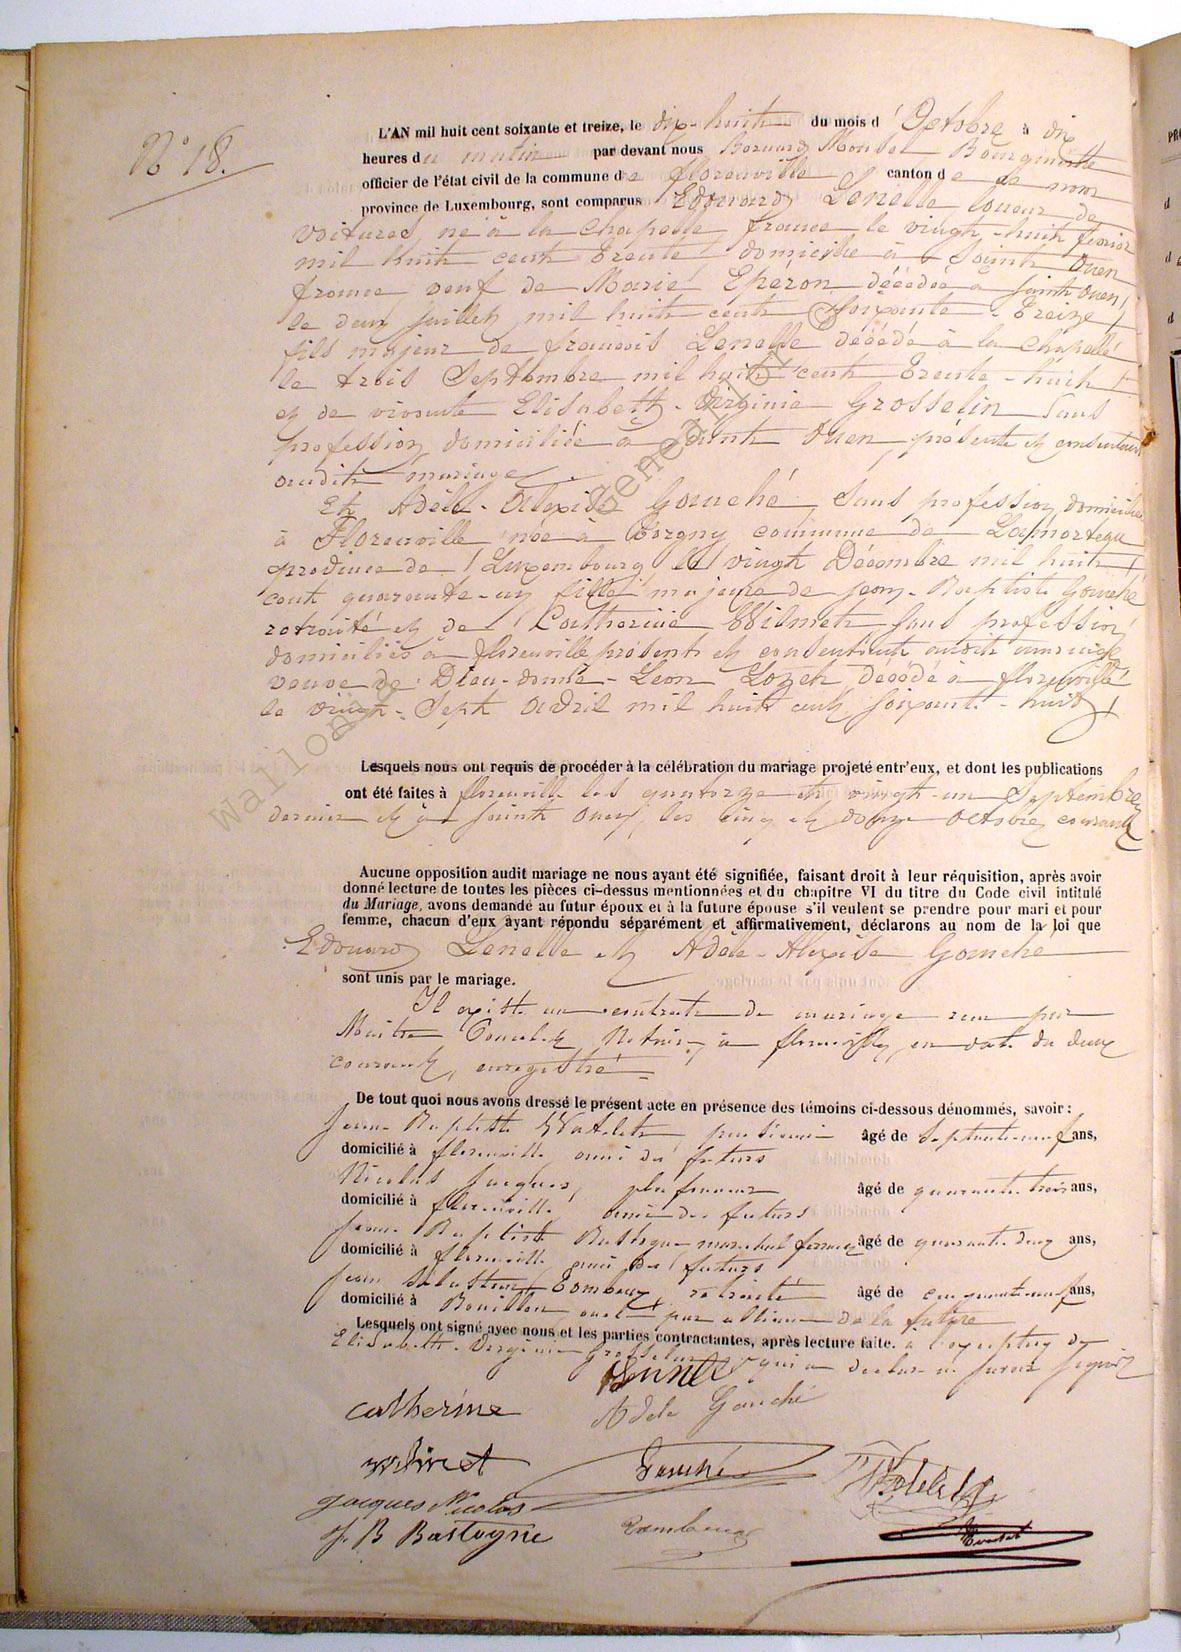 N° 18.
L'AN mil huit cent soixante et treize, le dix-huit du mois d'Octobre à dix
heures du matin par devant nous Bernard Bourgmestre
officier de l'état civil de la commune de florenville canton de ce nom
province de Luxembourg, sont comparus Edouard Lenelle loueur de
voitures, né à la Chapelle france le vingt-huit fevrier
mil huit cent trente domicilié à Saint Ouen
france veuf de Marie Epéron décédée à Saint Ouen
le deux juillet mil huit cent soixante-treize
fils majeur de francois Lenelle décédé à la Chapelle
le trois Septembre mil huit cent trente-huit
et de vivante Elisabeth-Virginie Grosselin Sans
profession domiciliée à Saint Ouen présente et consentante
audit mariage
Et Adèle-Alexise Gouché Sans profession domiciliée
à Florenville née à Torgny commune de Lamorteau
province de Luxembourg le vingt Décembre mil huit
cent quarante-un fille majeure de jean-Baptiste Gouché
retraité et de Catherine Wilmet sans profession
domiciliés à florenville présents et consentants audit mariage
veuve de Dieu-donné-Leon Lozet décédé à florenville
le vingt-Sept avril mil huit cent soixante-huit
Lesquels nous ont requis de procéder à la célébration du mariage projeté entr'eux, et dont les publications
ont été faites à florenville les quatorze et vingt-un Septembre
dernier et à Saint Ouen les cinq et douze Octobre courant
Aucune opposition audit mariage ne nous ayant été signifiée, faisant droit à leur réquisition, après avoir
donné lecture de toutes les pièces ci-dessus mentionnées et du chapitre VI du titre du Code civil intitulé
du Mariage, avons demandé au futur époux et à la future épouse s'il veulent se prendre pour mari et pour
femme, chacun d'eux ayant répondu séparément et affirmativement, déclarons au nom de la loi que
Edouard Lenelle et Adèle-Alexise Gouché
sont unis par le mariage.
Il existe un contrat de mariage reçu par
Maître Notaire à florenville en date du deux
courant, enregistré
De tout quoi nous avons dressé le présent acte en présence des témoins ci-dessous dénommés, savoir :
Jean Baptiste Watelet pensionné âgé de septante-neuf ans,
domicilié à florenville ami des futurs
Nicolas Jacques, plafonneur âgé de quarante-trois ans,
domicilié à florenville ami des futurs
Jean Baptiste Bastogne marechal ferrant âgé de quarante-deux ans,
domicilié à florenville ami des futurs
Jean Tombeur retraité âgé de cinquante-neuf ans,
domicilié à Bouillon oncle par alliance de la future
Lesquels ont signé avec nous et les parties contractantes, après lecture faite. à l'exception de
Elisabeth-Virginie Grosselin qui a déclaré ne savoir signer
Catherine
Adele Gouché
Gouché
Watelet
jacques Nicolas
J. B Bastogne
Tombeur